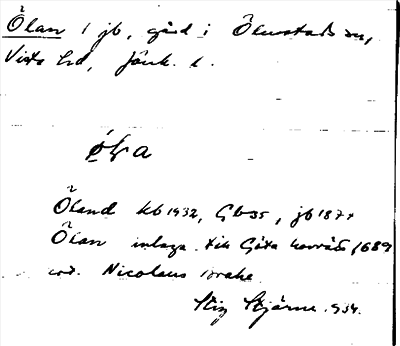 Ölan 1 jb, gård i Ölmstads sn,
Vista hd, Jönk. l.
Öland kb 1932, Gb 35, jb 1877
Ölan inlaga till Göta hovrätt 1689
Nicolaus Brahe
Stig Stjärne 1934.